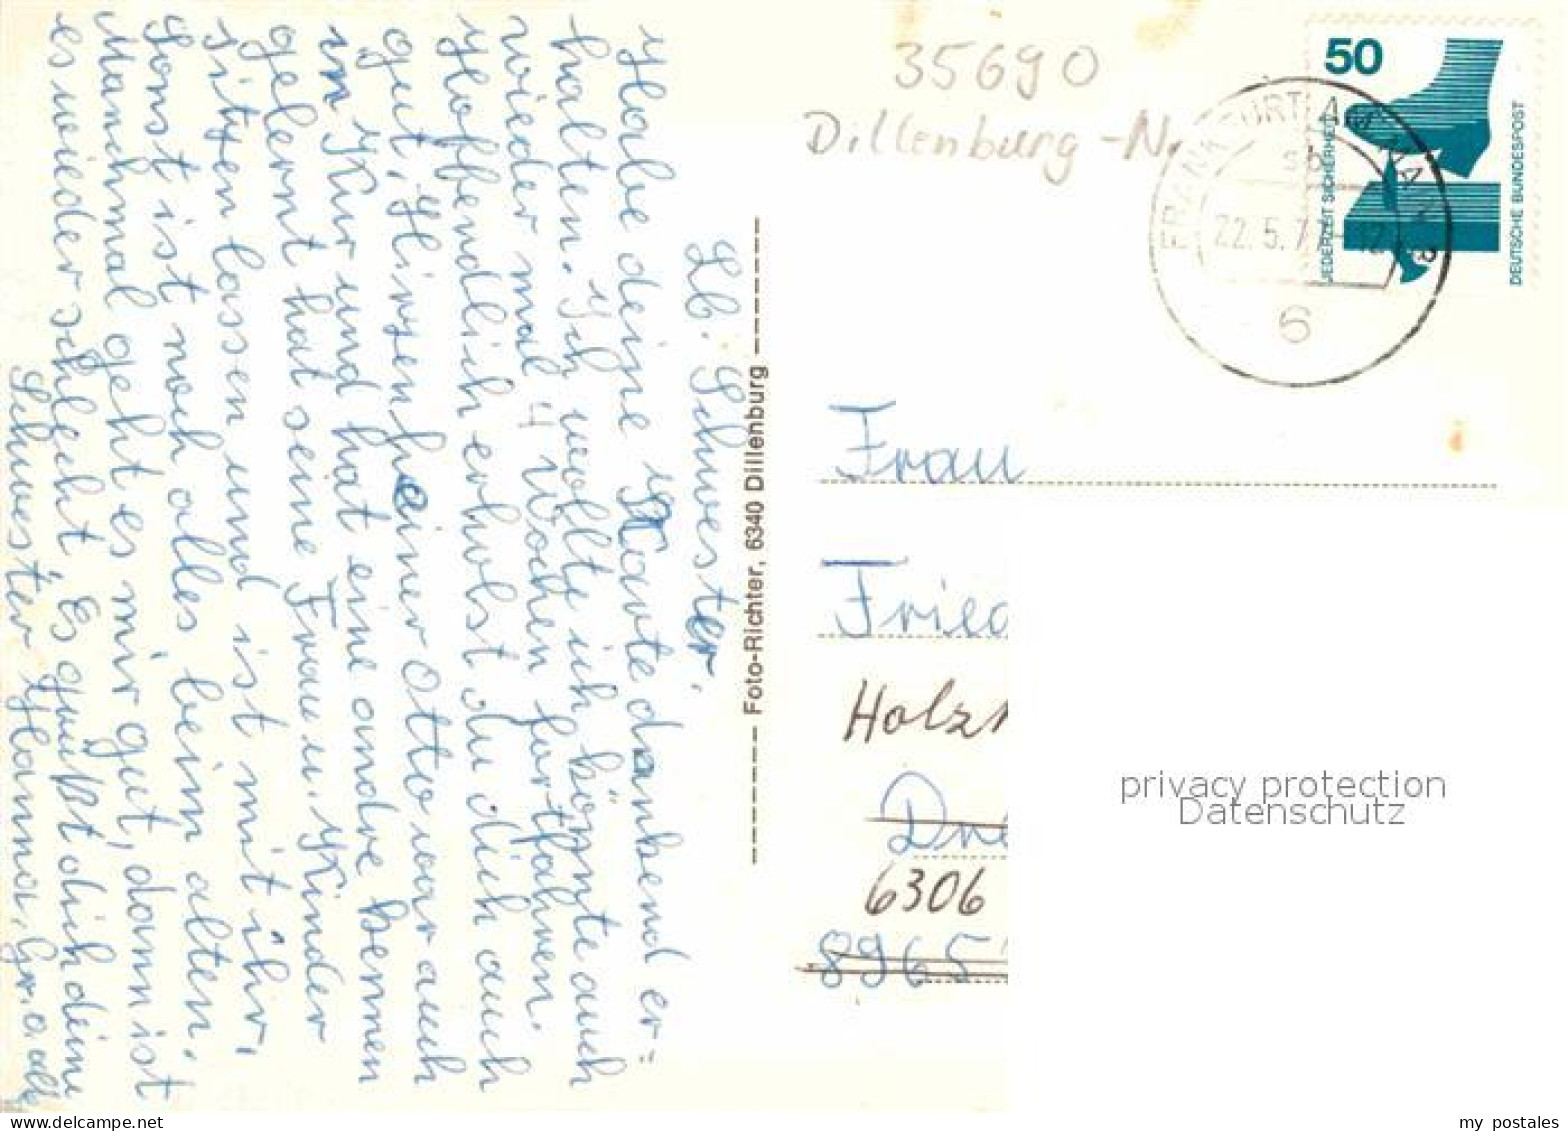 Lb. Schwester.
Habe deine Karte dankend er=
halten. Ich wollte ich könnte auch
wieder mal 4 Wochen fortfahren.
Hoffendlich erholst du dich auch
gut, Hirzenheiner Otto war auch
in Kur und hat eine andre kennen
gelernt hat seine Frau u. Kinder
sitzen lassen und ist mit ihr,
Sonst ist noch alles beim alten.
Manchmal geht es mir gut, dann ist
es wieder schlecht, Es grüßt dich deine
Schwester Hanna, Gr. a. alle
Foto-Richter, 6340 Dillenburg
35690
Dillenburg-N.
50
JEDERZEIT SICHERHEIT
DEUTSCHE BUNDESPOST
FRANKFURT AM MAIN
sb
22.5.7
12
6
Frau
Fried
Holzh
Dri
6306
8965
privacy protection
Datenschutz
my postales